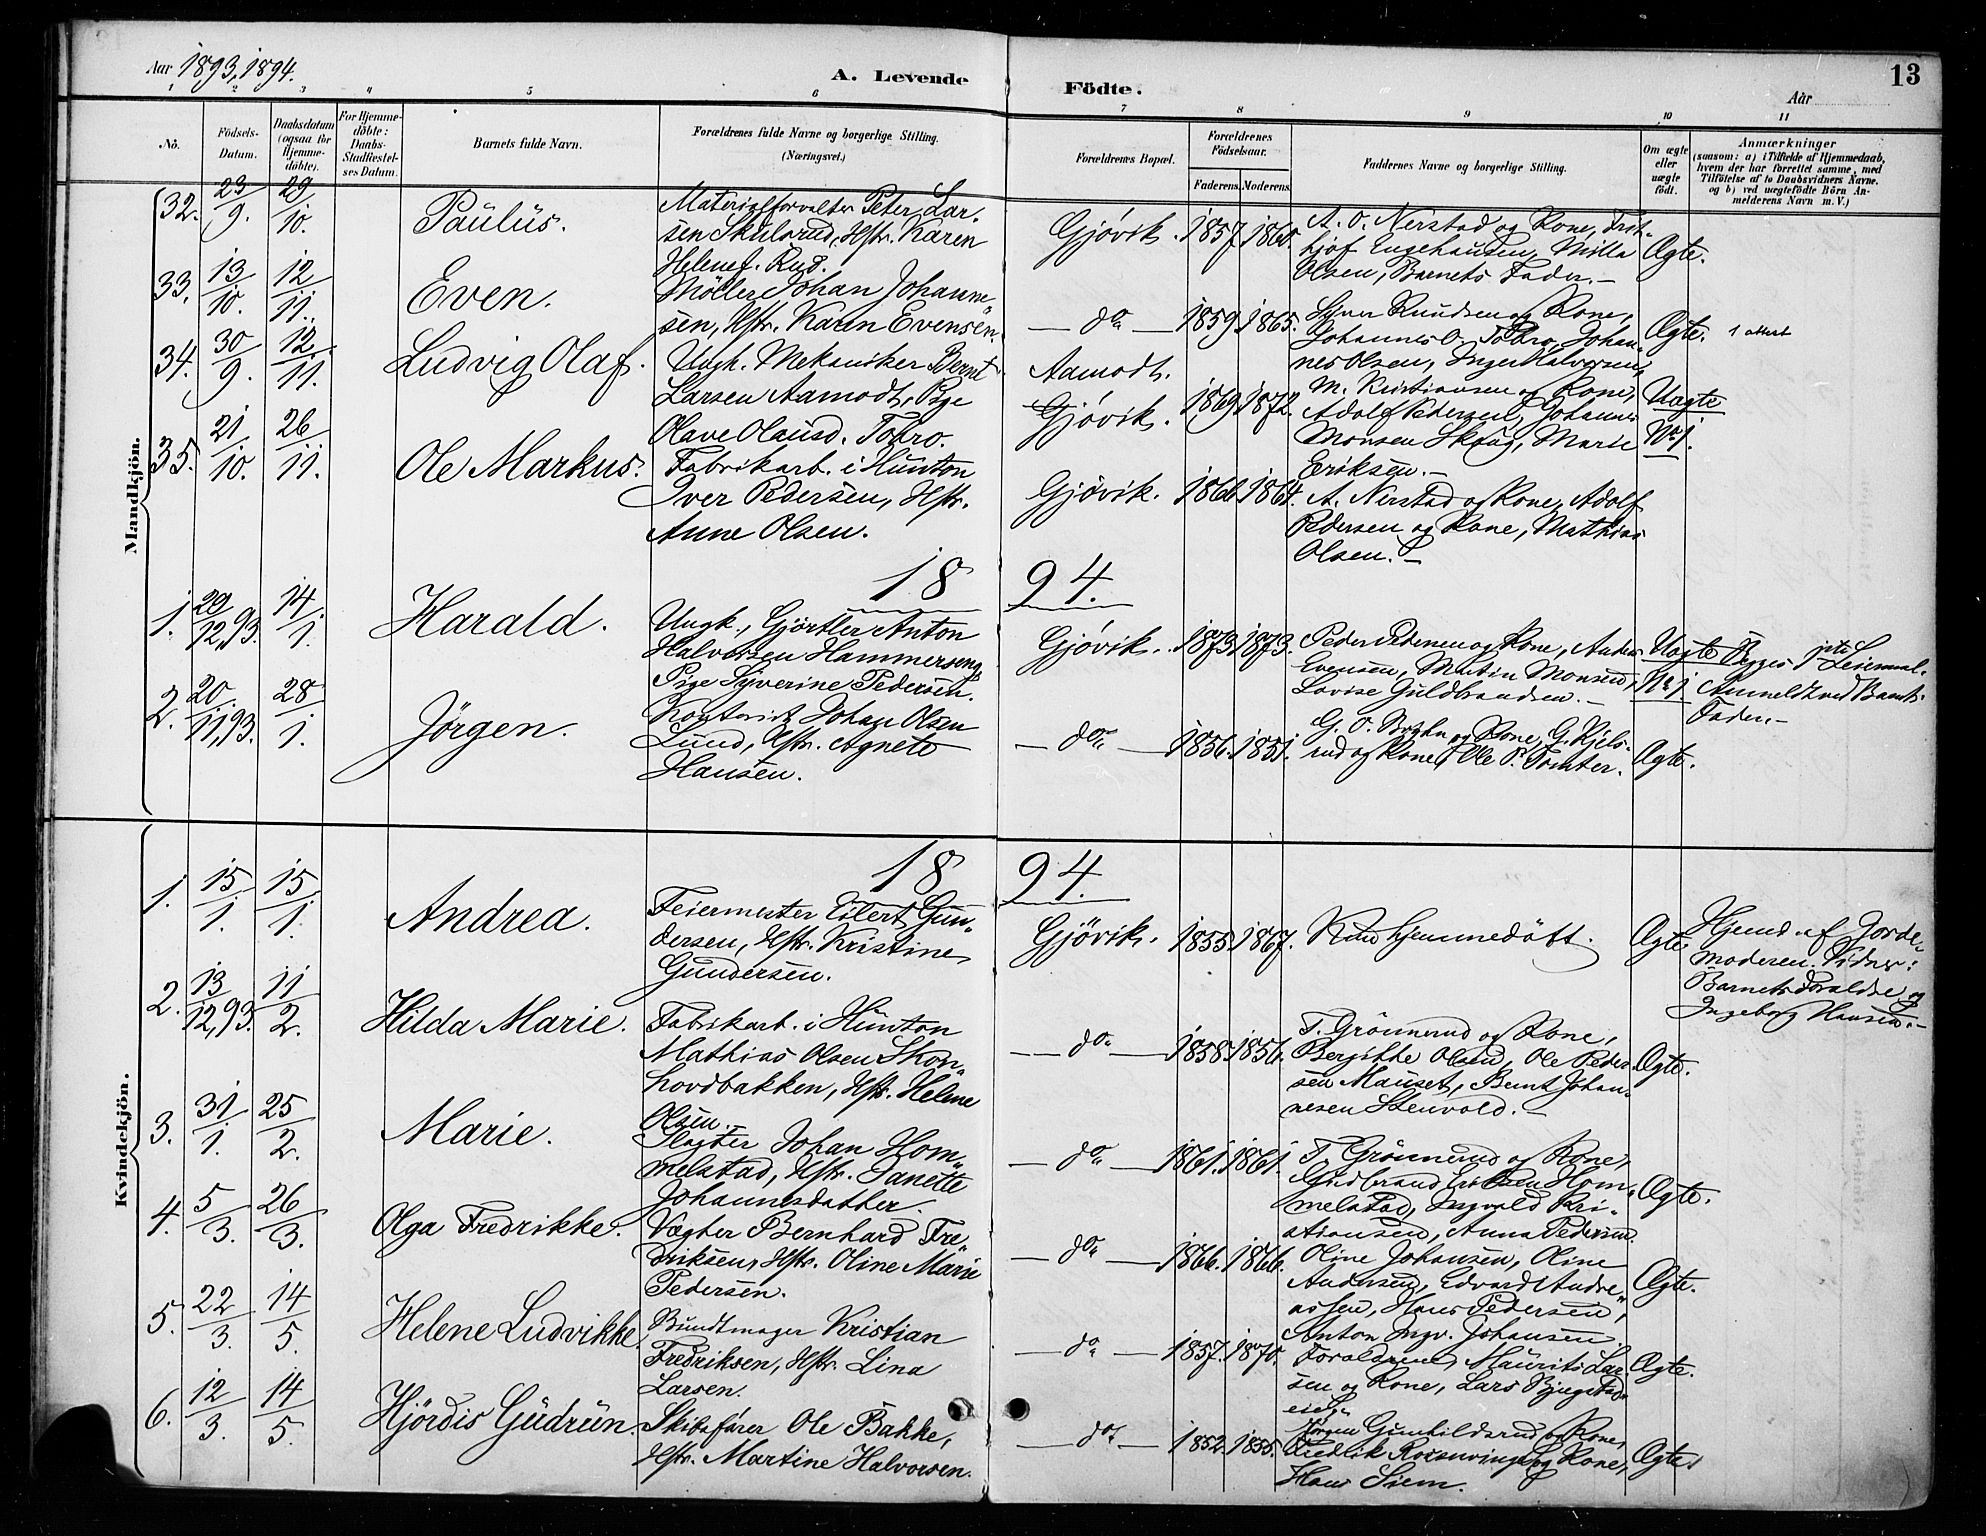 Aar 1893, 1894.
A. Levende Födte.
Aar
13
1 2 3 4 5 6 7 8 9 10 11
No.
Födsels-Datum.
Daabsdatum (ogsaa for Hjemmedöbte).
For Hjemmedöbte: Daabs-Stadfæstelses Datum.
Barnets fulde Navn.
Forældrenes fulde Navne og borgerlige Stilling. (Næringsvei.)
Forældrenes Bopæl.
Forældrenes Födselsaar.
Faderens. Moderens.
Faddernes Navne og borgerlige Stilling.
Om ægte eller uægte födt.
Anmærkninger
(saasom: a) i Tilfælde af Hjemmedaab, hvem der har forrettet samme, med Tilföielse af to Daabsvidners Navne, og b) ved uægtefödte Börn Anmelderens Navn m. V.)
Mandkjön.
32. 23/9. 29/10. Paulus.
Materialforvalter Peter Lar-
sen Skulsrud, Hstr. Karen
Helene f. Rud.
Gjövik. 1857. 1860.
A. O. Nerstad og Kone, Frit-
hjof Engehausen, Milla
Olsen, Barnets Fader.—
Ægte.
33. 13/10. 12/11. Even.
Möller Johan Johanne-
sen, Hstr. Karen Evensen.
— do — 1859. 1865.
Syver Knudsen og Kone,
Johannes O. Tobro, Johan-
nes Olsen, Inger Halvorsen,
Ægte. 1 attest
34. 30/9. 12/11. Ludvig Olaf.
Ungk. Mekaniker Bernt
Larsen Aamodt, Pige
Olave Olausd. Tobro.
Aamodt.
Gjövik. 1869. 1872.
M. Kristiansen og Kone,
Adolf Pedersen, Johannes
Monsen Skaug, Marie
Eriksen.—
Uægte
No 1.
35. 21/10. 26/11. Ole Markus.
Fabrikarb. i Hunton
Iver Pedersen, Hstr.
Anne Olsen.
Gjövik. 1866. 1864.
A. Nerstad og Kone, Adolf
Pedersen og Kone, Mathias
Olsen.—
1894.
1. 29/12,93. 14/1. Harald.
Ungk., Gjörtler Anton
Halvorsen Hammerseng,
Pige Syverine Pedersen.
Gjövik. 1873. 1873.
Peder Pedersen og Kone, Anders
Evensen, Martin Monsen,
Lovise Guldbrandsen.—
Uægte
No 1
Begges 1ste Leiermaal.
Anmeldt ved Barnets
Fader.—
2. 20./11,93. 28/1. Jörgen.
Kontorist Johan Olsen
Lund, Hstr. Agnete
Hansen.
— do — 1856. 1851.
G. O. Bryhn og Kone, G. Kjels-
rud og Kone, Ole P. Tomter.
Ægte.
Kvindekjön.
1894.
1. 15/1. 15/1. Andrea.
Feiermester Eilert Gun-
dersen, Hstr. Kristine
Gundersen.
Gjövik. 1855. 1867.
Kun hjemmedöbt.
Ægte.
Hjemd. af Jorde-
moderen. Vidner:
Barnets Forældre og
Ingeborg Hansen.—
2. 13/12,93. 11/2. Hilda Marie.
Fabrikarb. i Hunton
Mathias Olsen Skon-
hovdbakken, Hstr. Helene
Olsen.
— do — 1858. 1856.
T. Grönnerud og Kone,
Bergitte Olsen, Ole Peder-
sen Mauset, Bernt Johan-
nesen Stenvold.—
Ægte.
3. 31/1. 25/2. Marie.
Slagter Johan Hom-
melstad, Hstr. Janette
Johannesdatter.
— do — 1861. 1861.
T. Grönnerud og Kone,
Gudbrand Eriksen Hom-
melstad, Ingvald Kri-
stiansen, Anna Pedersen.
Ægte.
4. 5/3. 26/3. Olga Fredrikke.
Vægter Bernhard Fre-
driksen, Hstr. Oline Marie
Pedersen.
— do — 1866. 1866.
Oline Johansen, Oline
Andersen, Edvard Andre-
assen, Hans Pedersen,
Anton Ingv. Johansen.
Ægte.
5. 22/3. 14/5. Helene Ludvikke.
Bundtmager Kristian
Fredriksen, Hstr. Lina
Larsen.
— do — 1857. 1870.
Forældrene, Maurits Lar-
sen og Kone, Lars
Ægte.
6. 12/3. 14/5. Hjördis Gudrun.
Skibsförer Ole Bakke,
Hstr. Martine Halvorsen.
— do — 1852. 1855.
Jörgen Gunhildsrud og Kone,
Fredrik Rosenvinge og Kone,
Hans Siem.
Ægte.